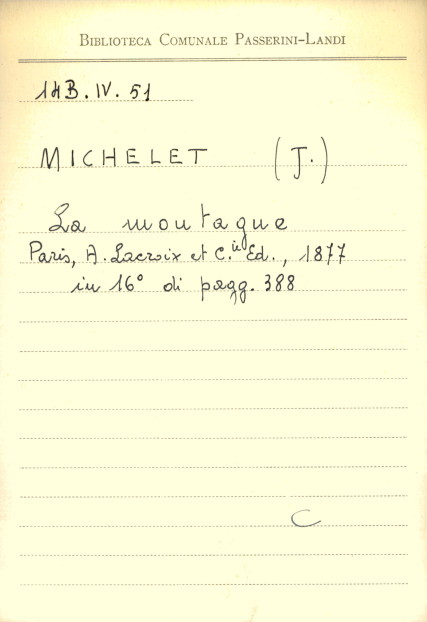 BIBLIOTECA COMUNALE PASSERINI-LANDI
14B.IV.51
MICHELET (J.)
La montagne
Paris, A. Lacroix et C.ie Ed., 1877
in 16° di pagg. 388
C